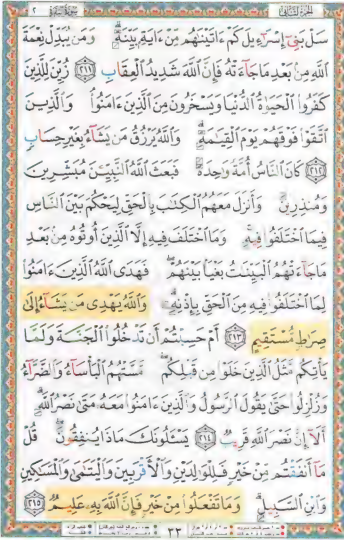 الجزء الثاني سورة البقرة ٢
سَلْ بَنِىٓ إِسْرَٰٓءِيلَ كَمْ ءَاتَيْنَٰهُم مِّنْ ءَايَةٍۭ بَيِّنَةٍۗ وَمَن يُبَدِّلْ نِعْمَةَ
ٱللَّهِ مِنۢ بَعْدِ مَا جَآءَتْهُ فَإِنَّ ٱللَّهَ شَدِيدُ ٱلْعِقَابِ ﴿٢١١﴾ زُيِّنَ لِلَّذِينَ
كَفَرُوا۟ ٱلْحَيَوٰةُ ٱلدُّنْيَا وَيَسْخَرُونَ مِنَ ٱلَّذِينَ ءَامَنُوا۟ۘ وَٱلَّذِينَ
ٱتَّقَوْا۟ فَوْقَهُمْ يَوْمَ ٱلْقِيَٰمَةِۗ وَٱللَّهُ يَرْزُقُ مَن يَشَآءُ بِغَيْرِ حِسَابٍ
﴿٢١٢﴾ كَانَ ٱلنَّاسُ أُمَّةً وَٰحِدَةً فَبَعَثَ ٱللَّهُ ٱلنَّبِيِّۦنَ مُبَشِّرِينَ
وَمُنذِرِينَ وَأَنزَلَ مَعَهُمُ ٱلْكِتَٰبَ بِٱلْحَقِّ لِيَحْكُمَ بَيْنَ ٱلنَّاسِ
فِيمَا ٱخْتَلَفُوا۟ فِيهِۚ وَمَا ٱخْتَلَفَ فِيهِ إِلَّا ٱلَّذِينَ أُوتُوهُ مِنۢ بَعْدِ
مَا جَآءَتْهُمُ ٱلْبَيِّنَٰتُ بَغْيًۢا بَيْنَهُمْۖ فَهَدَى ٱللَّهُ ٱلَّذِينَ ءَامَنُوا۟
لِمَا ٱخْتَلَفُوا۟ فِيهِ مِنَ ٱلْحَقِّ بِإِذْنِهِۦۗ وَٱللَّهُ يَهْدِى مَن يَشَآءُ إِلَىٰ
صِرَٰطٍ مُّسْتَقِيمٍ ﴿٢١٣﴾ أَمْ حَسِبْتُمْ أَن تَدْخُلُوا۟ ٱلْجَنَّةَ وَلَمَّا
يَأْتِكُم مَّثَلُ ٱلَّذِينَ خَلَوْا۟ مِن قَبْلِكُمۖ مَّسَّتْهُمُ ٱلْبَأْسَآءُ وَٱلضَّرَّآءُ
وَزُلْزِلُوا۟ حَتَّىٰ يَقُولَ ٱلرَّسُولُ وَٱلَّذِينَ ءَامَنُوا۟ مَعَهُۥ مَتَىٰ نَصْرُ ٱللَّهِۗ
أَلَآ إِنَّ نَصْرَ ٱللَّهِ قَرِيبٌ ﴿٢١٤﴾ يَسْـَٔلُونَكَ مَاذَا يُنفِقُونَۖ قُلْ
مَآ أَنفَقْتُم مِّنْ خَيْرٍ فَلِلْوَٰلِدَيْنِ وَٱلْأَقْرَبِينَ وَٱلْيَتَٰمَىٰ وَٱلْمَسَٰكِينِ
وَٱبْنِ ٱلسَّبِيلِۗ وَمَا تَفْعَلُوا۟ مِنْ خَيْرٍ فَإِنَّ ٱللَّهَ بِهِۦ عَلِيمٌ ﴿٢١٥﴾
٣٣